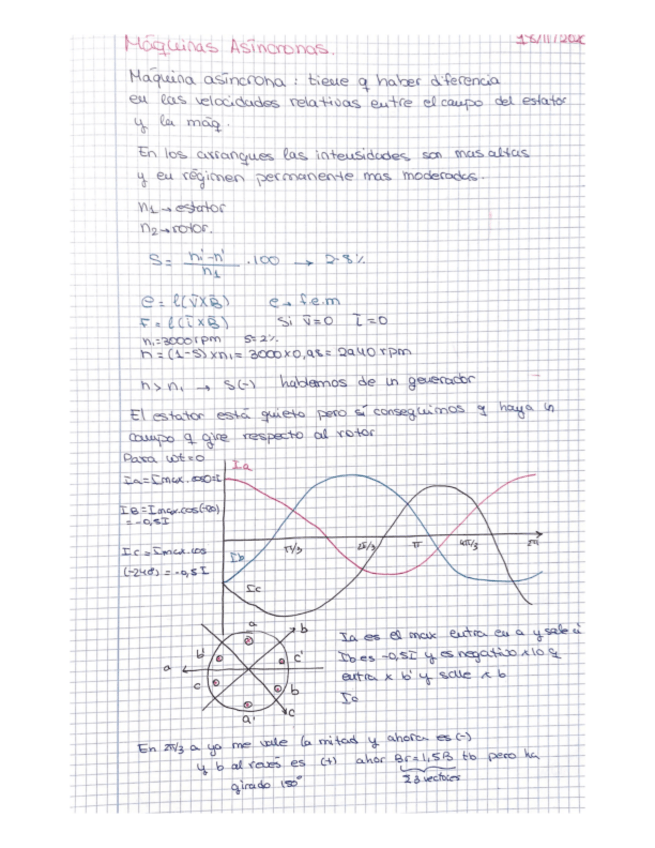 Máquinas Asíncronas.
Máquina asíncrona: tiene q haber diferencia
en las velocidades relativas entre el campo del estator
y la máq.
En los arranques las intensidades son mas altas
y en régimen permanente mas moderadas.
n1 → estator
n2 → rotor.
S = (n1 - n') / n1 · 100 → 2-8%
e = l(V̄×B̄) e → f.e.m
F = l(ī×B̄) Si v̄=0 ī=0
n1=3000rpm S=2%
n = (1-S)×n1 = 3000×0,98 = 2940 rpm
n > n1 → S(-) hablamos de un generador
El estator está quieto pero sí conseguimos q haya un
campo q gire respecto al rotor
Para wt=0
Ia
Ia=Imax.cos0=I
IB=Imax.cos(-120)
=-0,5I
Ic=Imax.cos
(-240)=-0,5I
Ib
Ic
π/3
2π/3
π
4π/3
a
b
b'
c'
a
c
b
a'
c
Ia es el max entra en a y sale a'
Ib es -0,5I y es negativo x lo q
entra x b' y sale x b
Ic
En 2π/3 a ya me vale la mitad y ahora es (-)
y b al revés es (+) ahor Br=1,5B tb pero ha
girado
Σ3 vectores